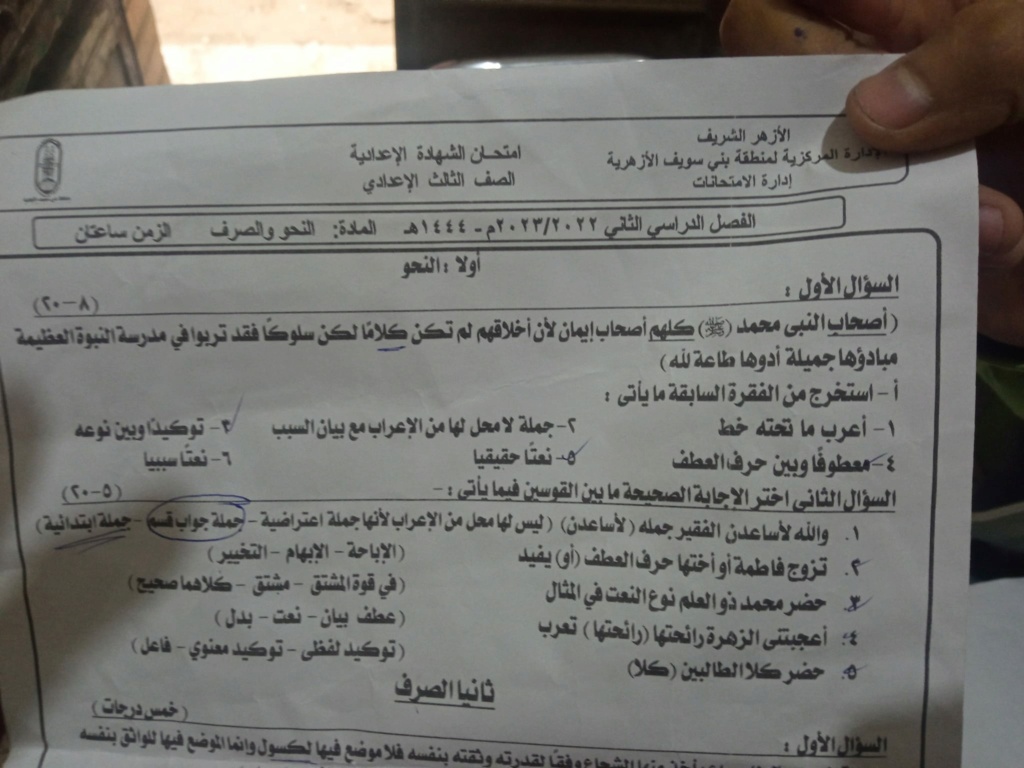 الأزهر الشريف
الإدارة المركزية لمنطقة بني سويف الأزهرية
إدارة الامتحانات
امتحان الشهادة الإعدادية
الصف الثالث الإعدادي
الفصل الدراسي الثاني ٢٠٢٣/٢٠٢٢م - ١٤٤٤هـ المادة: النحو والصرف الزمن ساعتان
أولا : النحو
السؤال الأول : (٨-٢٠)
( أصحاب النبى محمد (ﷺ) كلهم أصحاب إيمان لأن أخلاقهم لم تكن كلامًا لكن سلوكًا فقد تربوا في مدرسة النبوة العظيمة
مبادؤها جميلة أدوها طاعة لله )
أ - استخرج من الفقرة السابقة ما يأتى :
١- أعرب ما تحته خط ٢- جملة لا محل لها من الإعراب مع بيان السبب ٣- توكيدًا وبين نوعه
٤- معطوفًا وبين حرف العطف ٥- نعتًا حقيقيا ٦- نعتًا سببيا
السؤال الثانى اختر الإجابة الصحيحة ما بين القوسين فيما يأتى : - (٥-٢٠)
١. والله لأساعدن الفقير جمله (لأساعدن) (ليس لها محل من الإعراب لأنها جملة اعتراضية - جملة جواب قسم - جملة إبتدائية)
٢. تزوج فاطمة أو أختها حرف العطف (أو) يفيد (الإباحة - الإبهام - التخيير)
٣. حضر محمد ذو العلم نوع النعت في المثال (في قوة المشتق - مشتق - كلاهما صحيح)
٤. أعجبتنى الزهرة رائحتها (رائحتها) تعرب (عطف بيان - نعت - بدل)
٥. حضر كلا الطالبين (كلا) (توكيد لفظى - توكيد معنوي - فاعل)
ثانيا الصرف
السؤال الأول : (خمس درجات)
منها الشجاع وفقًا لقدرته وثقته بنفسه فلا موضع فيها لكسول وانما الموضع فيها للواثق بنفسه